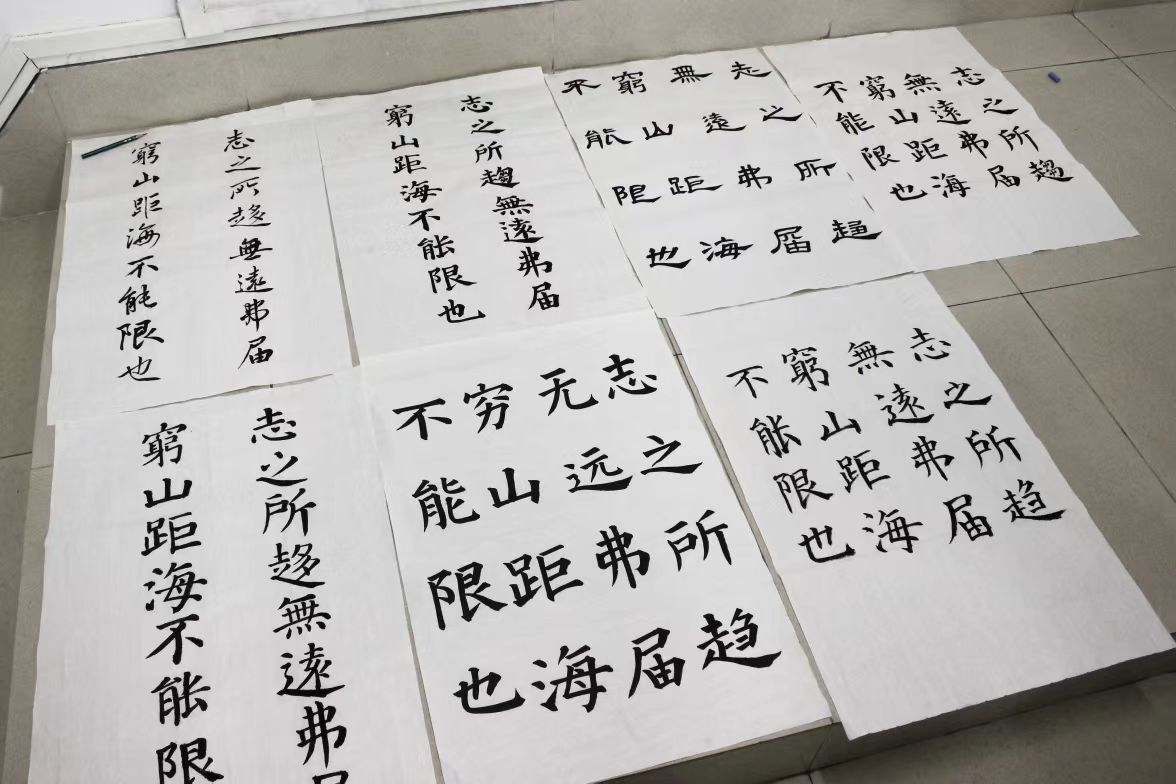 志之所趍無遠弗届
窮山距海不能限也
志之所趨無遠弗届
窮山距海不能限也
志之所趋
無遠弗届
窮山距海
不能限也
志之所趨
無遠弗届
窮山距海
不能限也
志之所趍無遠弗届
窮山距海不能限
志之所趋
无远弗届
穷山距海
不能限也
志之所趋
無遠弗届
窮山距海
不能限也